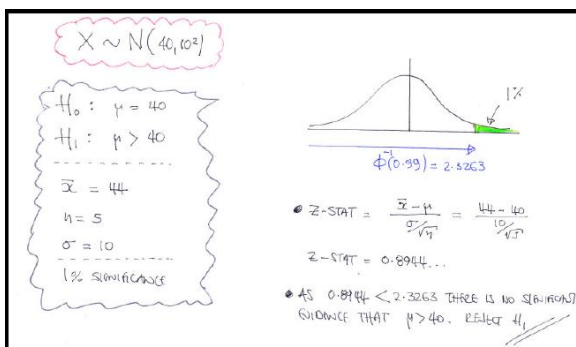 X ~ N(40,10²)
H₀: μ = 40
H₁: μ > 40
x̄ = 44
n = 5
σ = 10
1% SIGNIFICANCE
1%
Φ⁻¹(0.99) = 2.3263
• Z-STAT = (x̄ - μ)/(σ/√n) = (44 - 40)/(10/√5)
Z-STAT = 0.8944...
• AS 0.8944 < 2.3263 THERE IS NO SIGNIFICANT
EVIDENCE THAT μ > 40. REJECT H₁